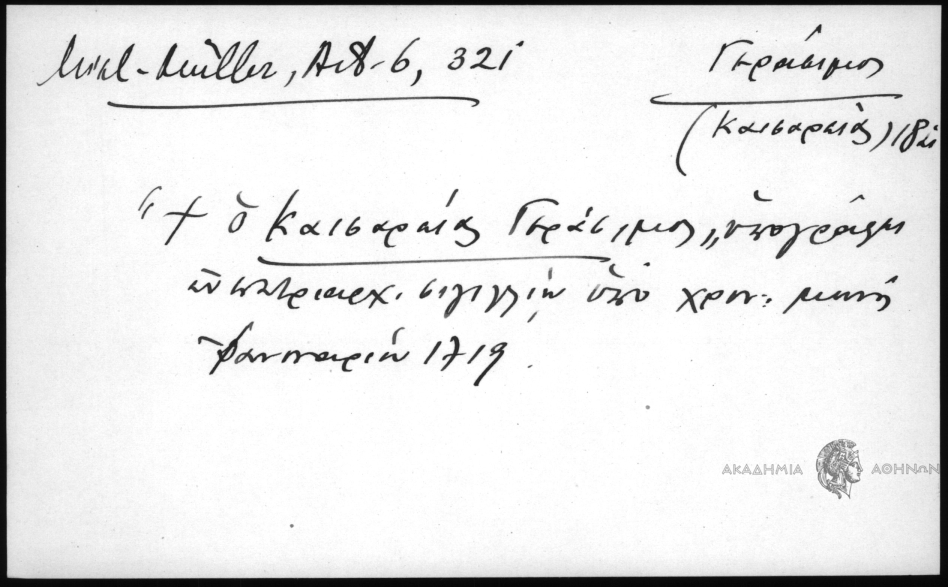 Mikl-Müller, Act-6, 321
Γεράσιμος
(Καισαρείας) 18
"† ὁ Καισαρείας Γεράσιμος„ ὑπογράφει
ἐν πατριαρχ. σιγιλλίῳ ὑπὸ χρον: μηνὸς
Ἰαννουαρίου 1719.
ΑΚΑΔΗΜΙΑ ΑΘΗΝΩΝ